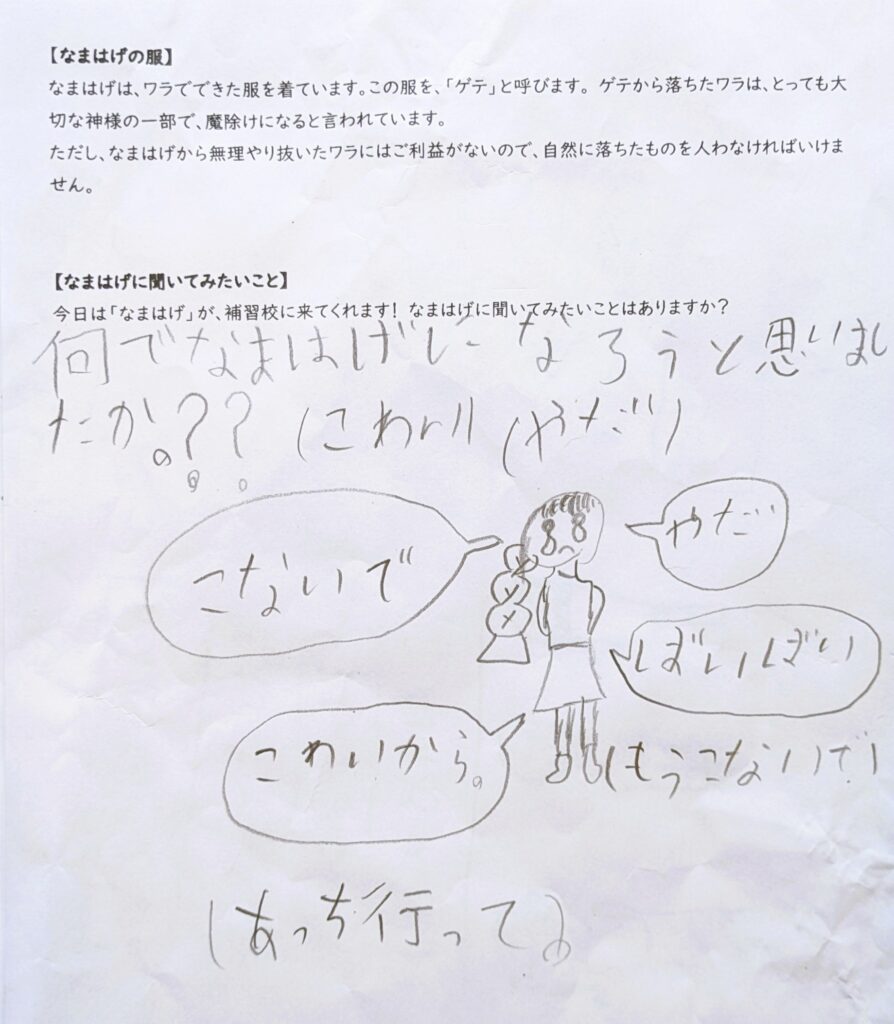 【なまはげの服】
なまはげは、ワラでできた服を着ています。この服を、「ゲテ」と呼びます。 ゲテから落ちたワラは、とっても大
切な神様の一部で、魔除けになると言われています。
ただし、なまはげから無理やり抜いたワラにはご利益がないので、自然に落ちたものを人わなければいけま
せん。
【なまはげに聞いてみたいこと】
今日は「なまはげ」が、補習校に来てくれます! なまはげに聞いてみたいことはありますか?
何でなまはげになろうと思いまし
たか。?? (こわい) (やだ)
こないで
やだ
ばいばい
こわいから。
(もうこないで)
(あっち行って。)